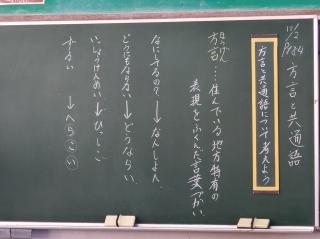 12/2
P84
方言と共通語
方言と共通語について考えよう
ほうげん
方言…住んでいる地方特有の
表現をふくんだ言葉づかい
なにしてるの?→なんしよん
どうにもならない→どうならい
いっしょうけんめい→ひっしこ
ずるい →へらこい